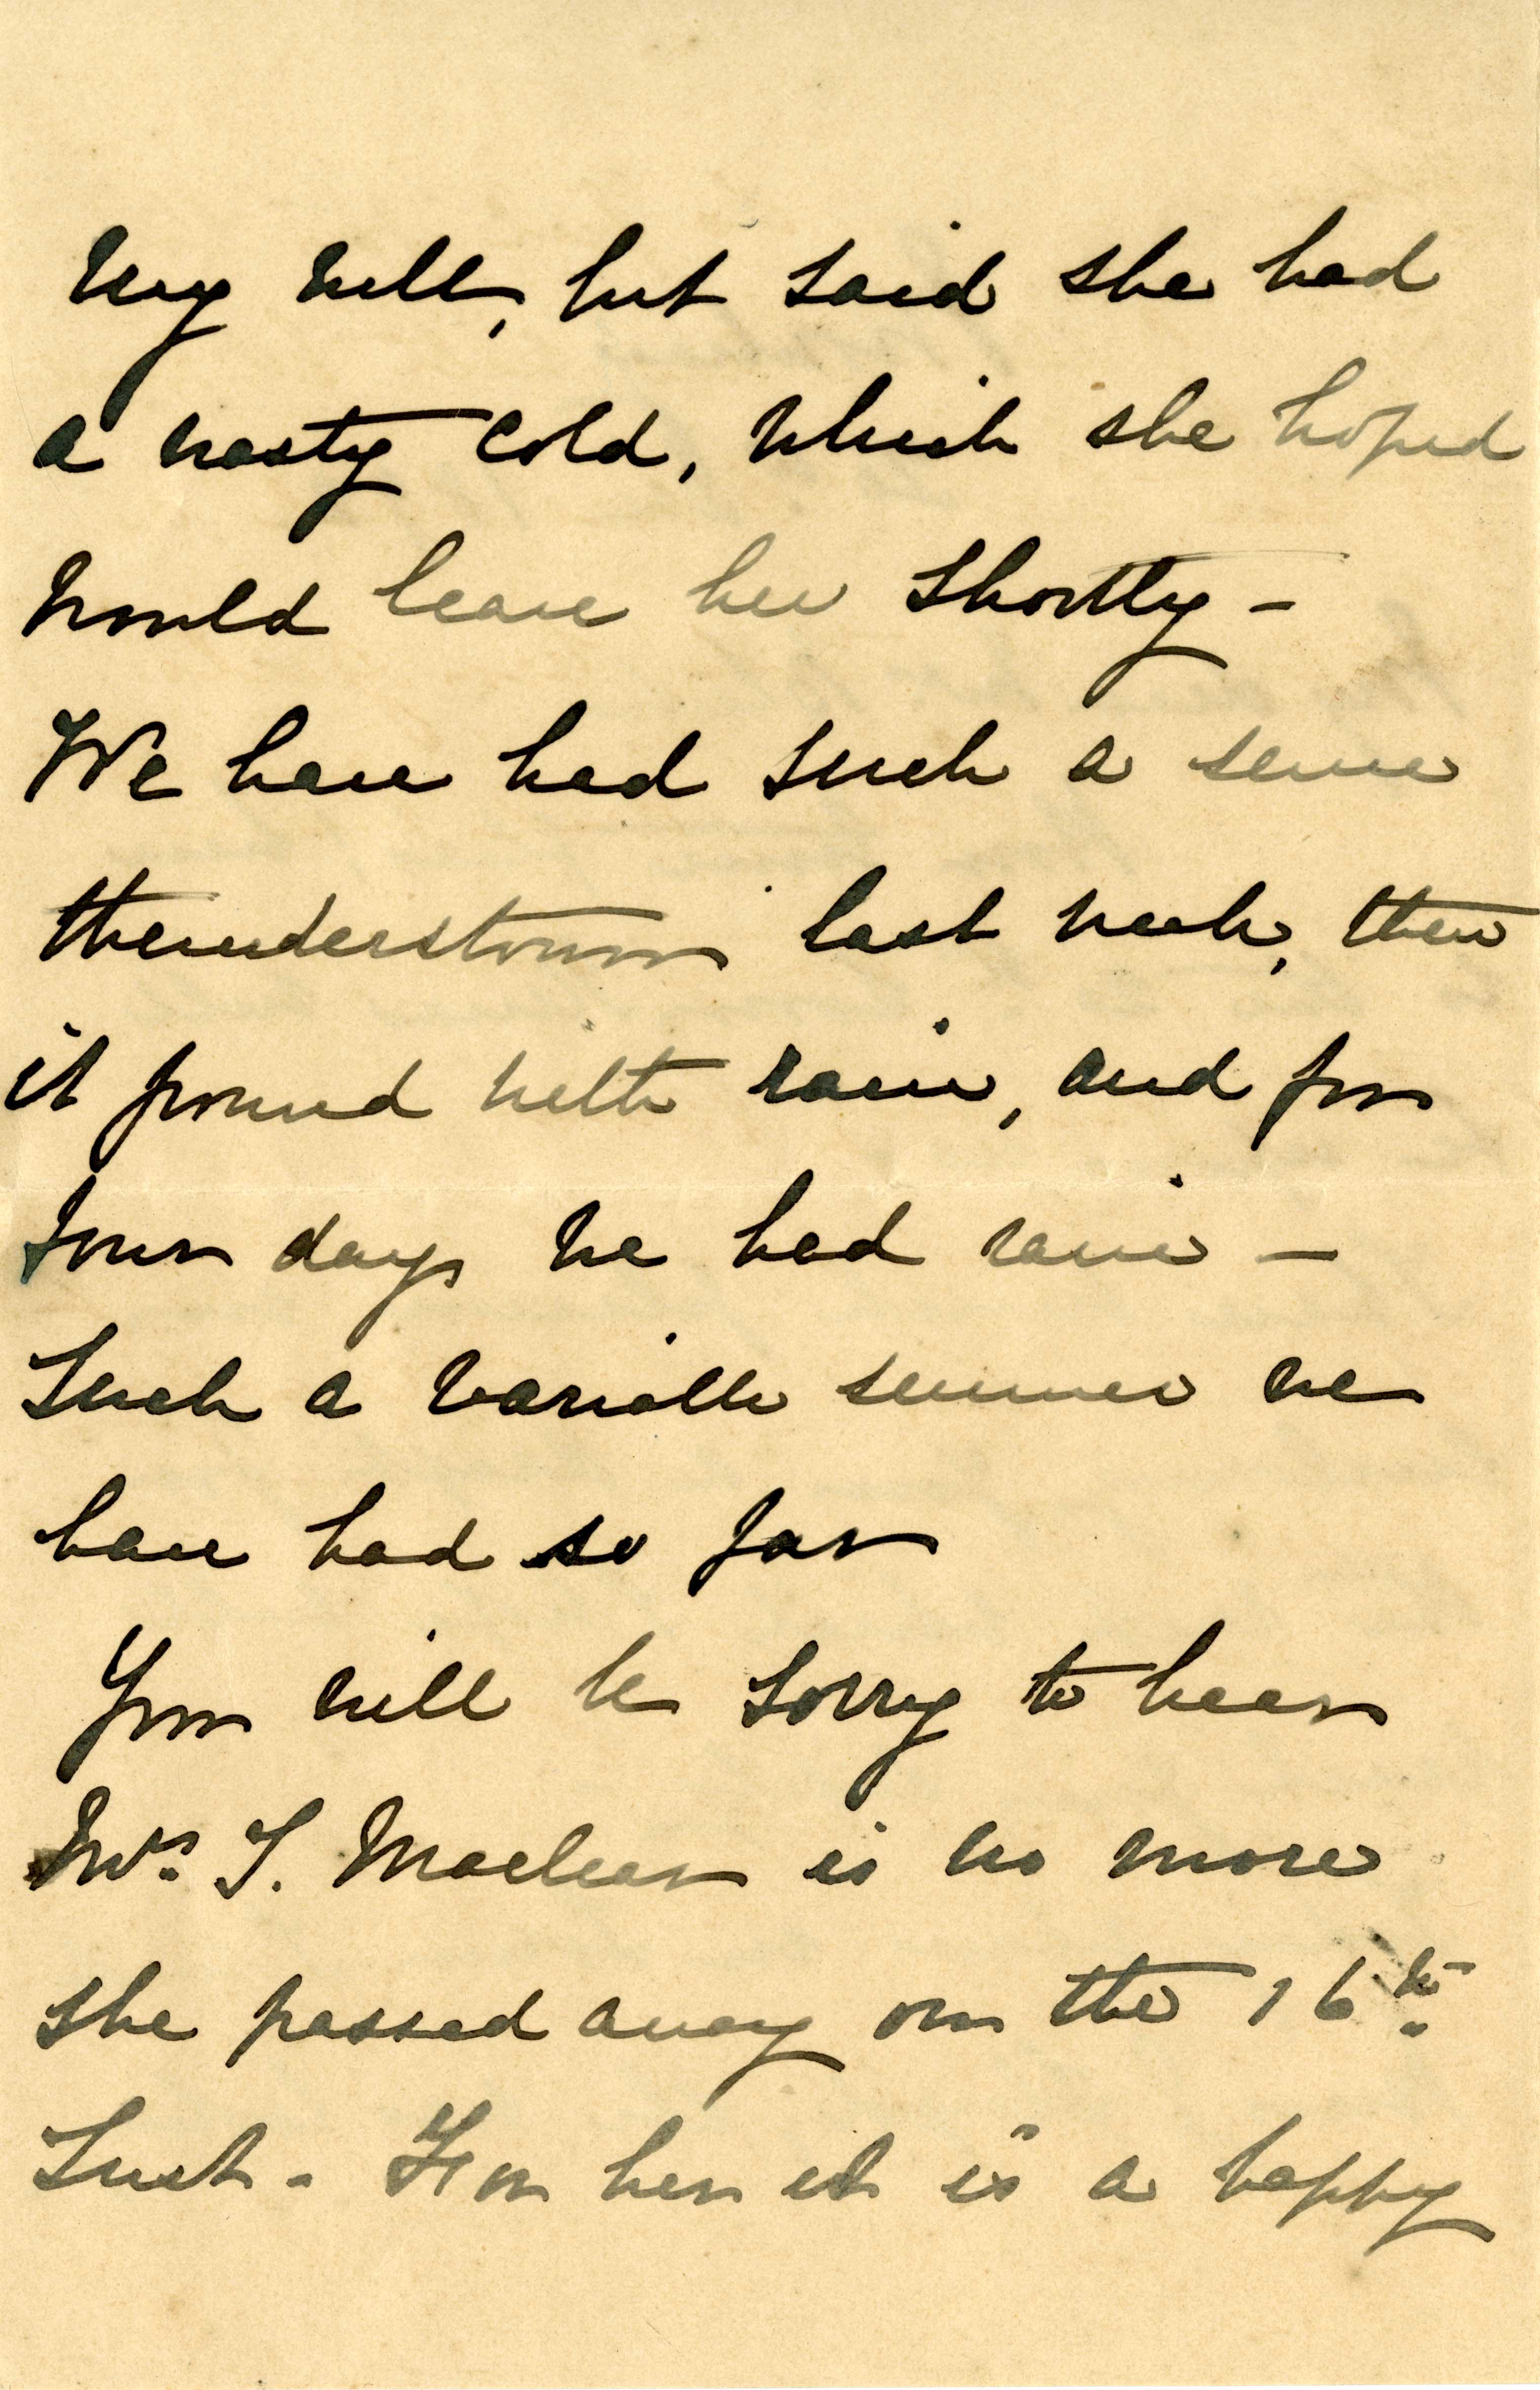 very well, but said she had
a nasty cold, which she hoped
would leave her shortly -
We have had such a severe
thunderstorm last week, then
it poured with rain, and for
four days we had rain -
Such a variable summer we
have had so far
You will be sorry to hear
Mrs. T. Maclear is no more
she passed away on the 16th
Inst - For her it is a happy